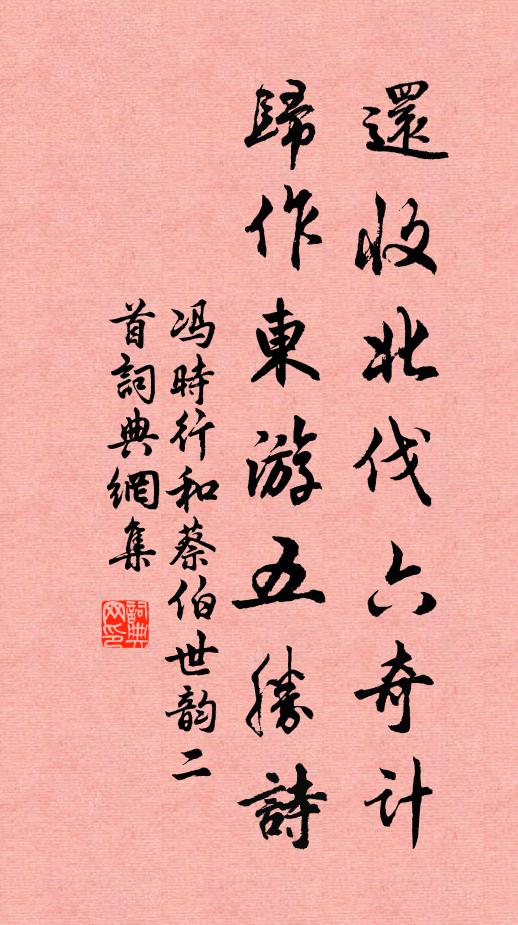 還收北伐六奇计
歸作東游五勝詩
冯時行和蔡伯世韵二
首詞典網集
詞典
网印